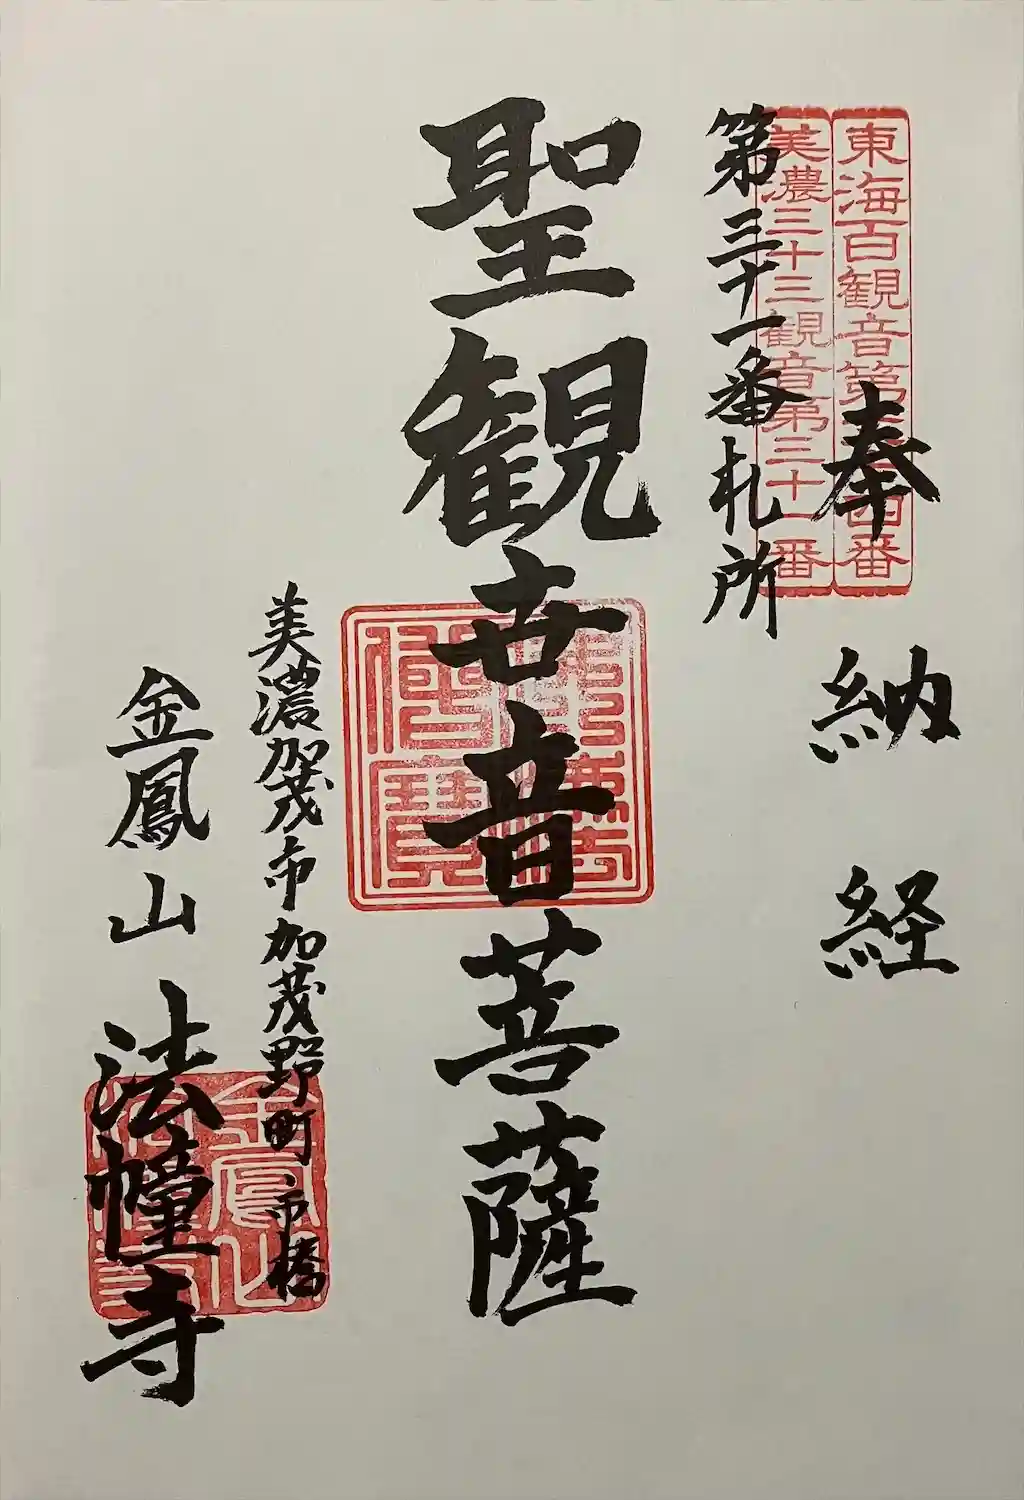 東海百観音第六十四番
美濃三十三観音第三十一番
奉納経
第三十一番札所
聖観世音菩薩
佛法僧寳
美濃加茂市加茂野町市橋
金鳳山法幢寺
金鳳山法幢寺